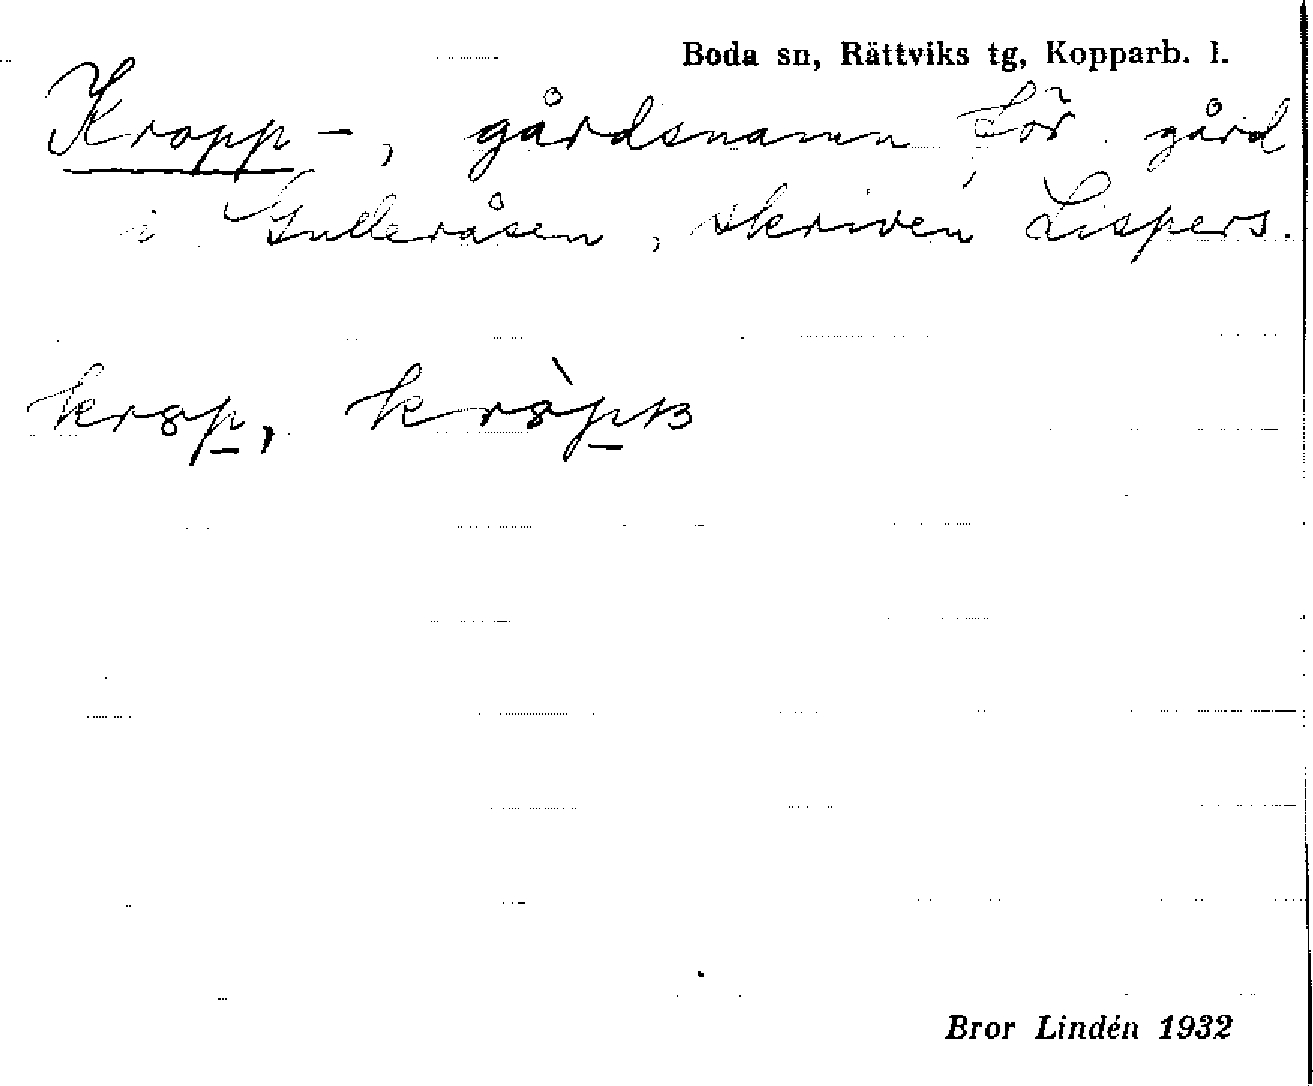 Boda sn, Rättviks tg, Kopparb. l.
Kropp-, gårdsnamn för gård
i Gulleråsen, skriven Lispers.
Bror Lindén 1932